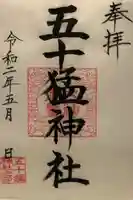 奉拝
五十猛神社
令和二年五月 日